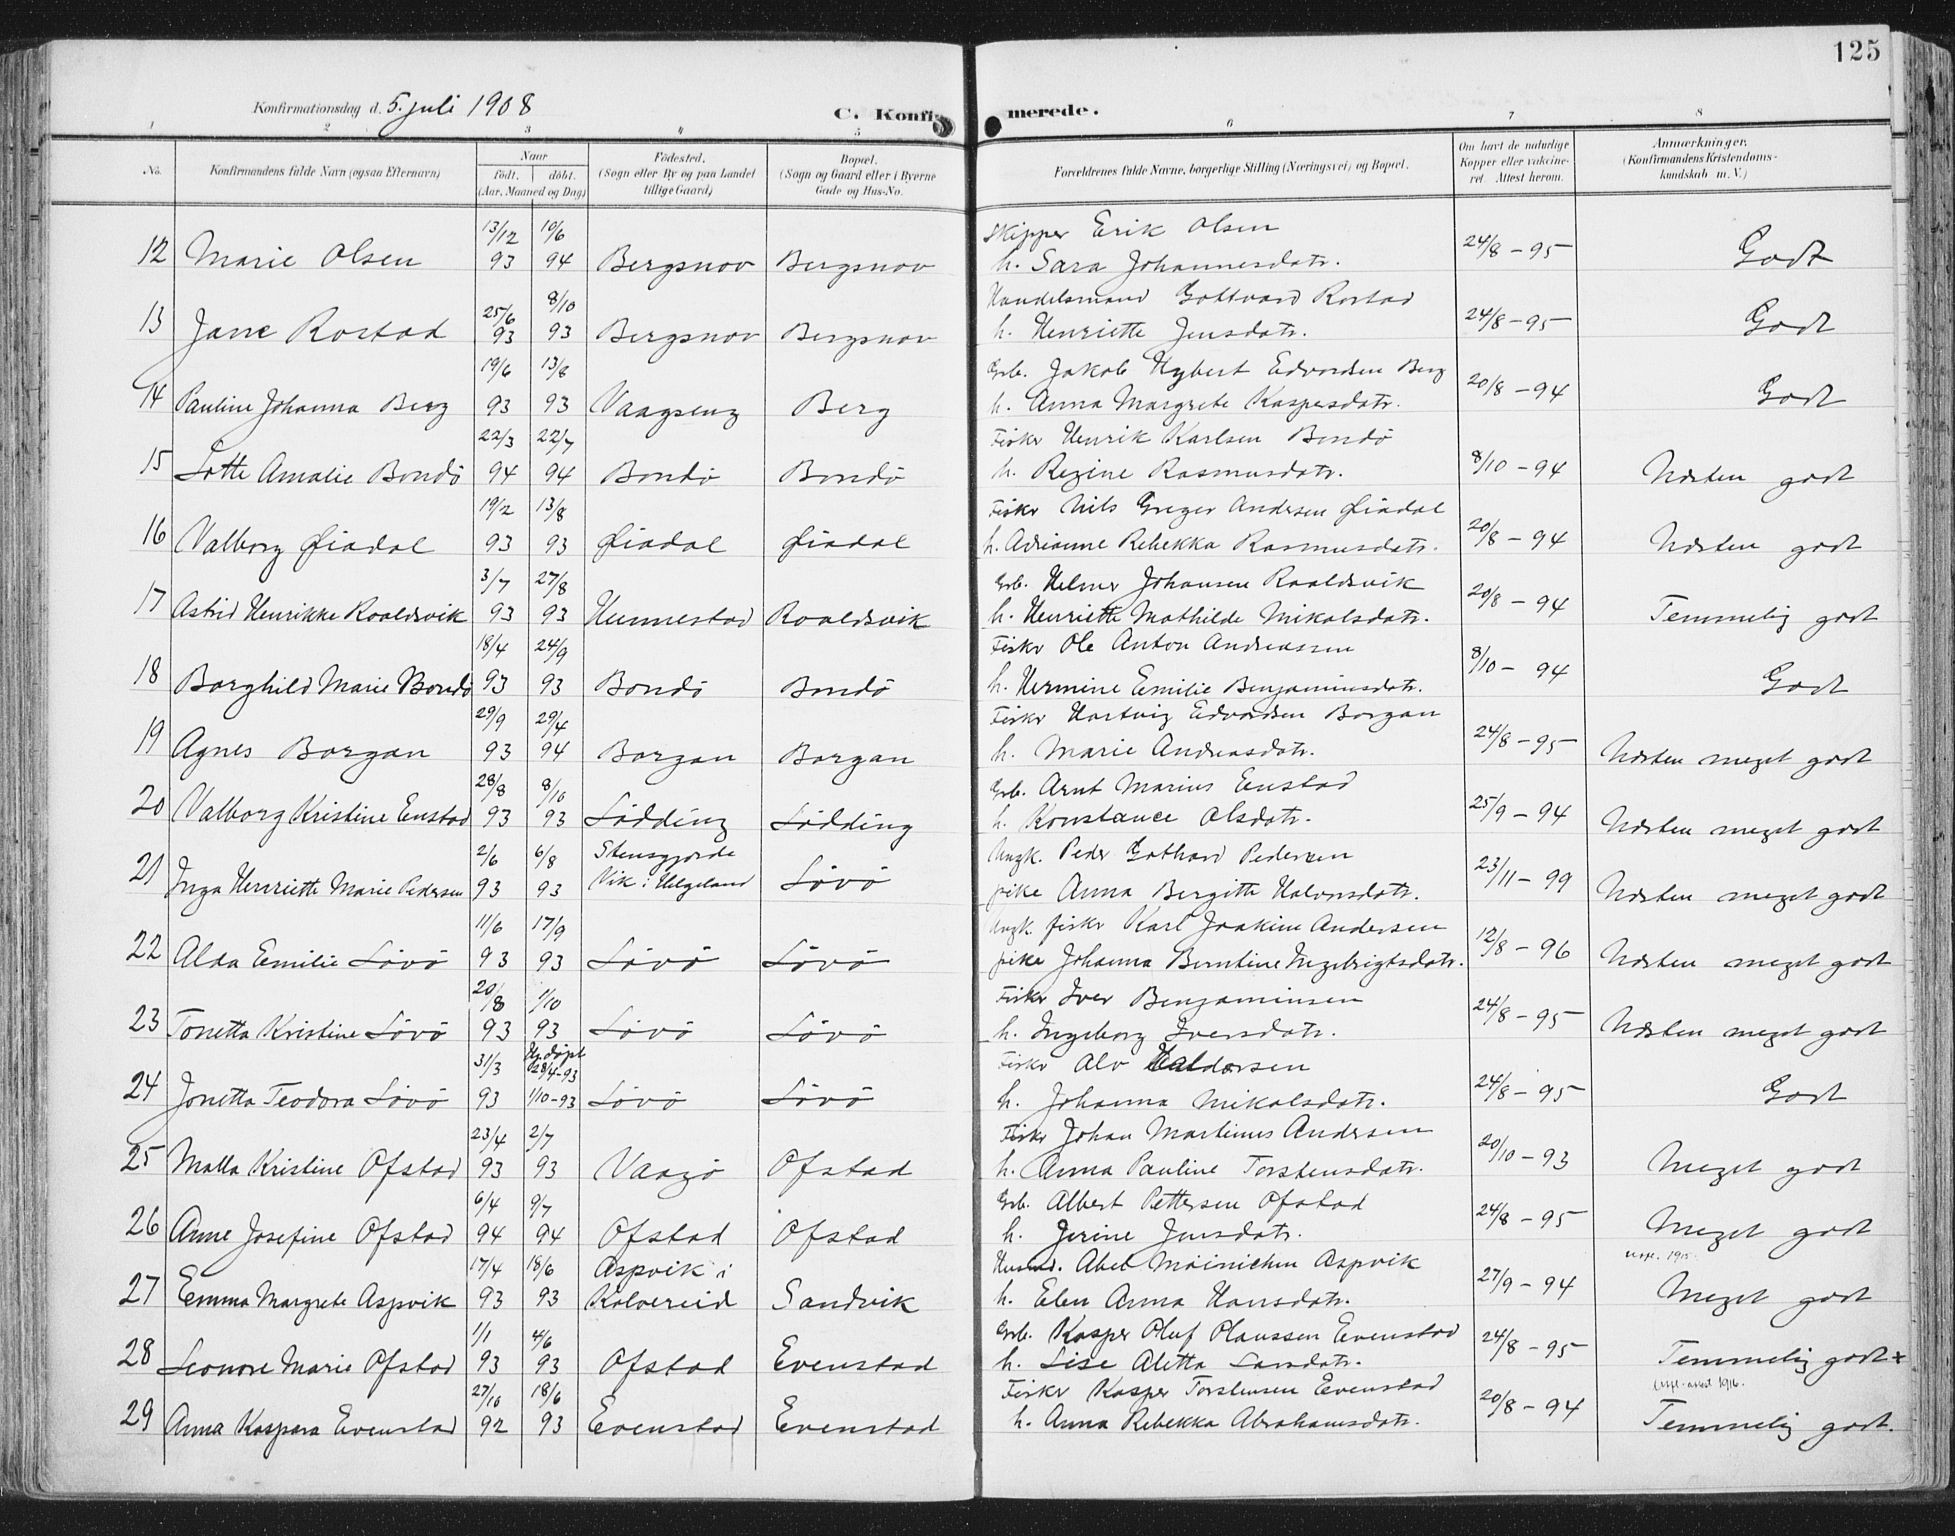 125
Konfirmationsdag d. 5. juli 1908
C. Konfirmerede.
1 2 3 4 5 6 7 8
No.
Konfirmandens fulde Navn (ogsaa Efternavn)
Naar
født. døbt.
(Aar, Maaned og Dag)
Fødested.
(Sogn eller By og paa Landet
tillige Gaard)
Bopæl.
(Sogn og Gaard eller i Byerne
Gade og Hus-No.
Forældrenes fulde Navne, borgerlige Stilling (Næringsvei) og Bopæl.
Om havt de naturlige
Kopper eller vaccine-
ret. Attest herom.
Anmærkninger.
(Konfirmandens Kristendoms-
kundskab m. V.)
13/12 10/6 Skipper Erik Olsen
12 Marie Olsen 93 94 Bergsnov Bergsnov h. Sara Johannesdatr. 24/8-95 Godt
25/6 8/10 Handelsmand Gottvard Rostad
13 Jane Rostad 93 93 Bergsnov Bergsnov h. Henriette Jensdatr. 24/8-95 Godt
19/6 13/8 Grb. Jakob Hybert Edvardsen Berg
14 Pauline Johanna Berg 93 93 Vaagseng Berg h. Anna Margrete Kaspersdatr. 20/8-94 Godt
22/3 22/7 Fisker Henrik Karlsen Bondö
15 Lotte Amalie Bondö 94 94 Bondö Bondö h. Regine Rasmusdatr. 8/10-94 Næsten godt
19/2 13/8 Fisker Nils Greger Andersen Øiadal
16 Valborg Øiadal 93 93 Øiadal Øiadal h. Adrianne Rebekka Rasmusdatr. 20/8-94 Næsten godt
3/7 27/8 Grb. Helmer Johansen Raaldsvik
17 Astrid Henrikke Roaldsvik 93 93 Hunnestad Roaldsvik h. Henriette Mathilde Mikalsdatr. 20/8-94 Temmelig godt
18/4 24/9 Fisker Ole Anton Andreassen
18 Borghild Marie Bondö 93 93 Bondö Bondö h. Hermine Emilie Benjaminsdatr. 8/10-94 Godt
29/9 29/4 Fisker Hartvig Edvardsen Borgan
19 Agnes Borgan 93 94 Borgan Borgan h. Marie Andreasdatr. 24/8-95 Næsten meget godt
28/8 8/10 Grb. Arnt Marius Enstad
20 Valborg Kristine Enstad 93 93 Lödding Lödding h. Konstance Olsdatr. 25/9-94 Næsten meget godt
2/6 6/8 Stensgjorde Ungk. Peder Gothard Pedersen
21 Inga Henriette Marie Pedersen 93 93 Vik i Helgeland Lövö pike Anna Bergitte Halvorsdatr. 23/11-99 Næsten meget godt
11/6 17/9 Ungk. fisker Karl Joakim Andersen
22 Alda Emilie Lövö 93 93 Lövö Lövö pike Johanna Berntine Ingebrigtsdatr. 12/8-96 Næsten meget godt
20/8 1/10 Fisker Iver Benjaminsen
23 Tonetta Kristine Lövö 93 93 Lövö Lövö h. Ingeborg Iversdatr. 24/8-95 Næsten meget godt
31/3 Hj. döpt 28/4-93 Fisker Alv Haldorsen
24 Jonetta Teodora Lövö 93 1/10-93 Lövö Lövö h. Johanna Mikalsdatr. 24/8-95 Godt
23/4 2/7 Fisker Johan Martinus Andersen
25 Malla Kristine Ofstad 93 93 Vaagö Ofstad h. Anna Pauline Torstensdatr. 20/10-93 Meget godt
6/4 9/7 Grb. Albert Pettersen Ofstad
26 Anne Josefine Ofstad 94 94 Ofstad Ofstad h. Jerine Jensdatr. 24/8-95 Meget godt
17/4 18/6 Aspvik i Husmd. Abel Möinichen Aspvik
27 Emma Margrete Aspvik 93 93 Kolvereid Sandvik h. Elen Anna Hansdatr. 27/9-94 Meget godt
1/1 4/6 Grb. Kasper Oluf Olaussen Evenstad
28 Leonore Marie Ofstad 93 93 Ofstad Evenstad h. Lise Aletta Larsdatr. 24/8-95 Temmelig godt
27/10 18/6 Fisker Kasper Torstensen Evenstad
29 Anna Kaspara Evenstad 92 93 Evenstad Evenstad h. Anna Rebekka Abrahamsdatr. 20/8-94 Temmelig godt.